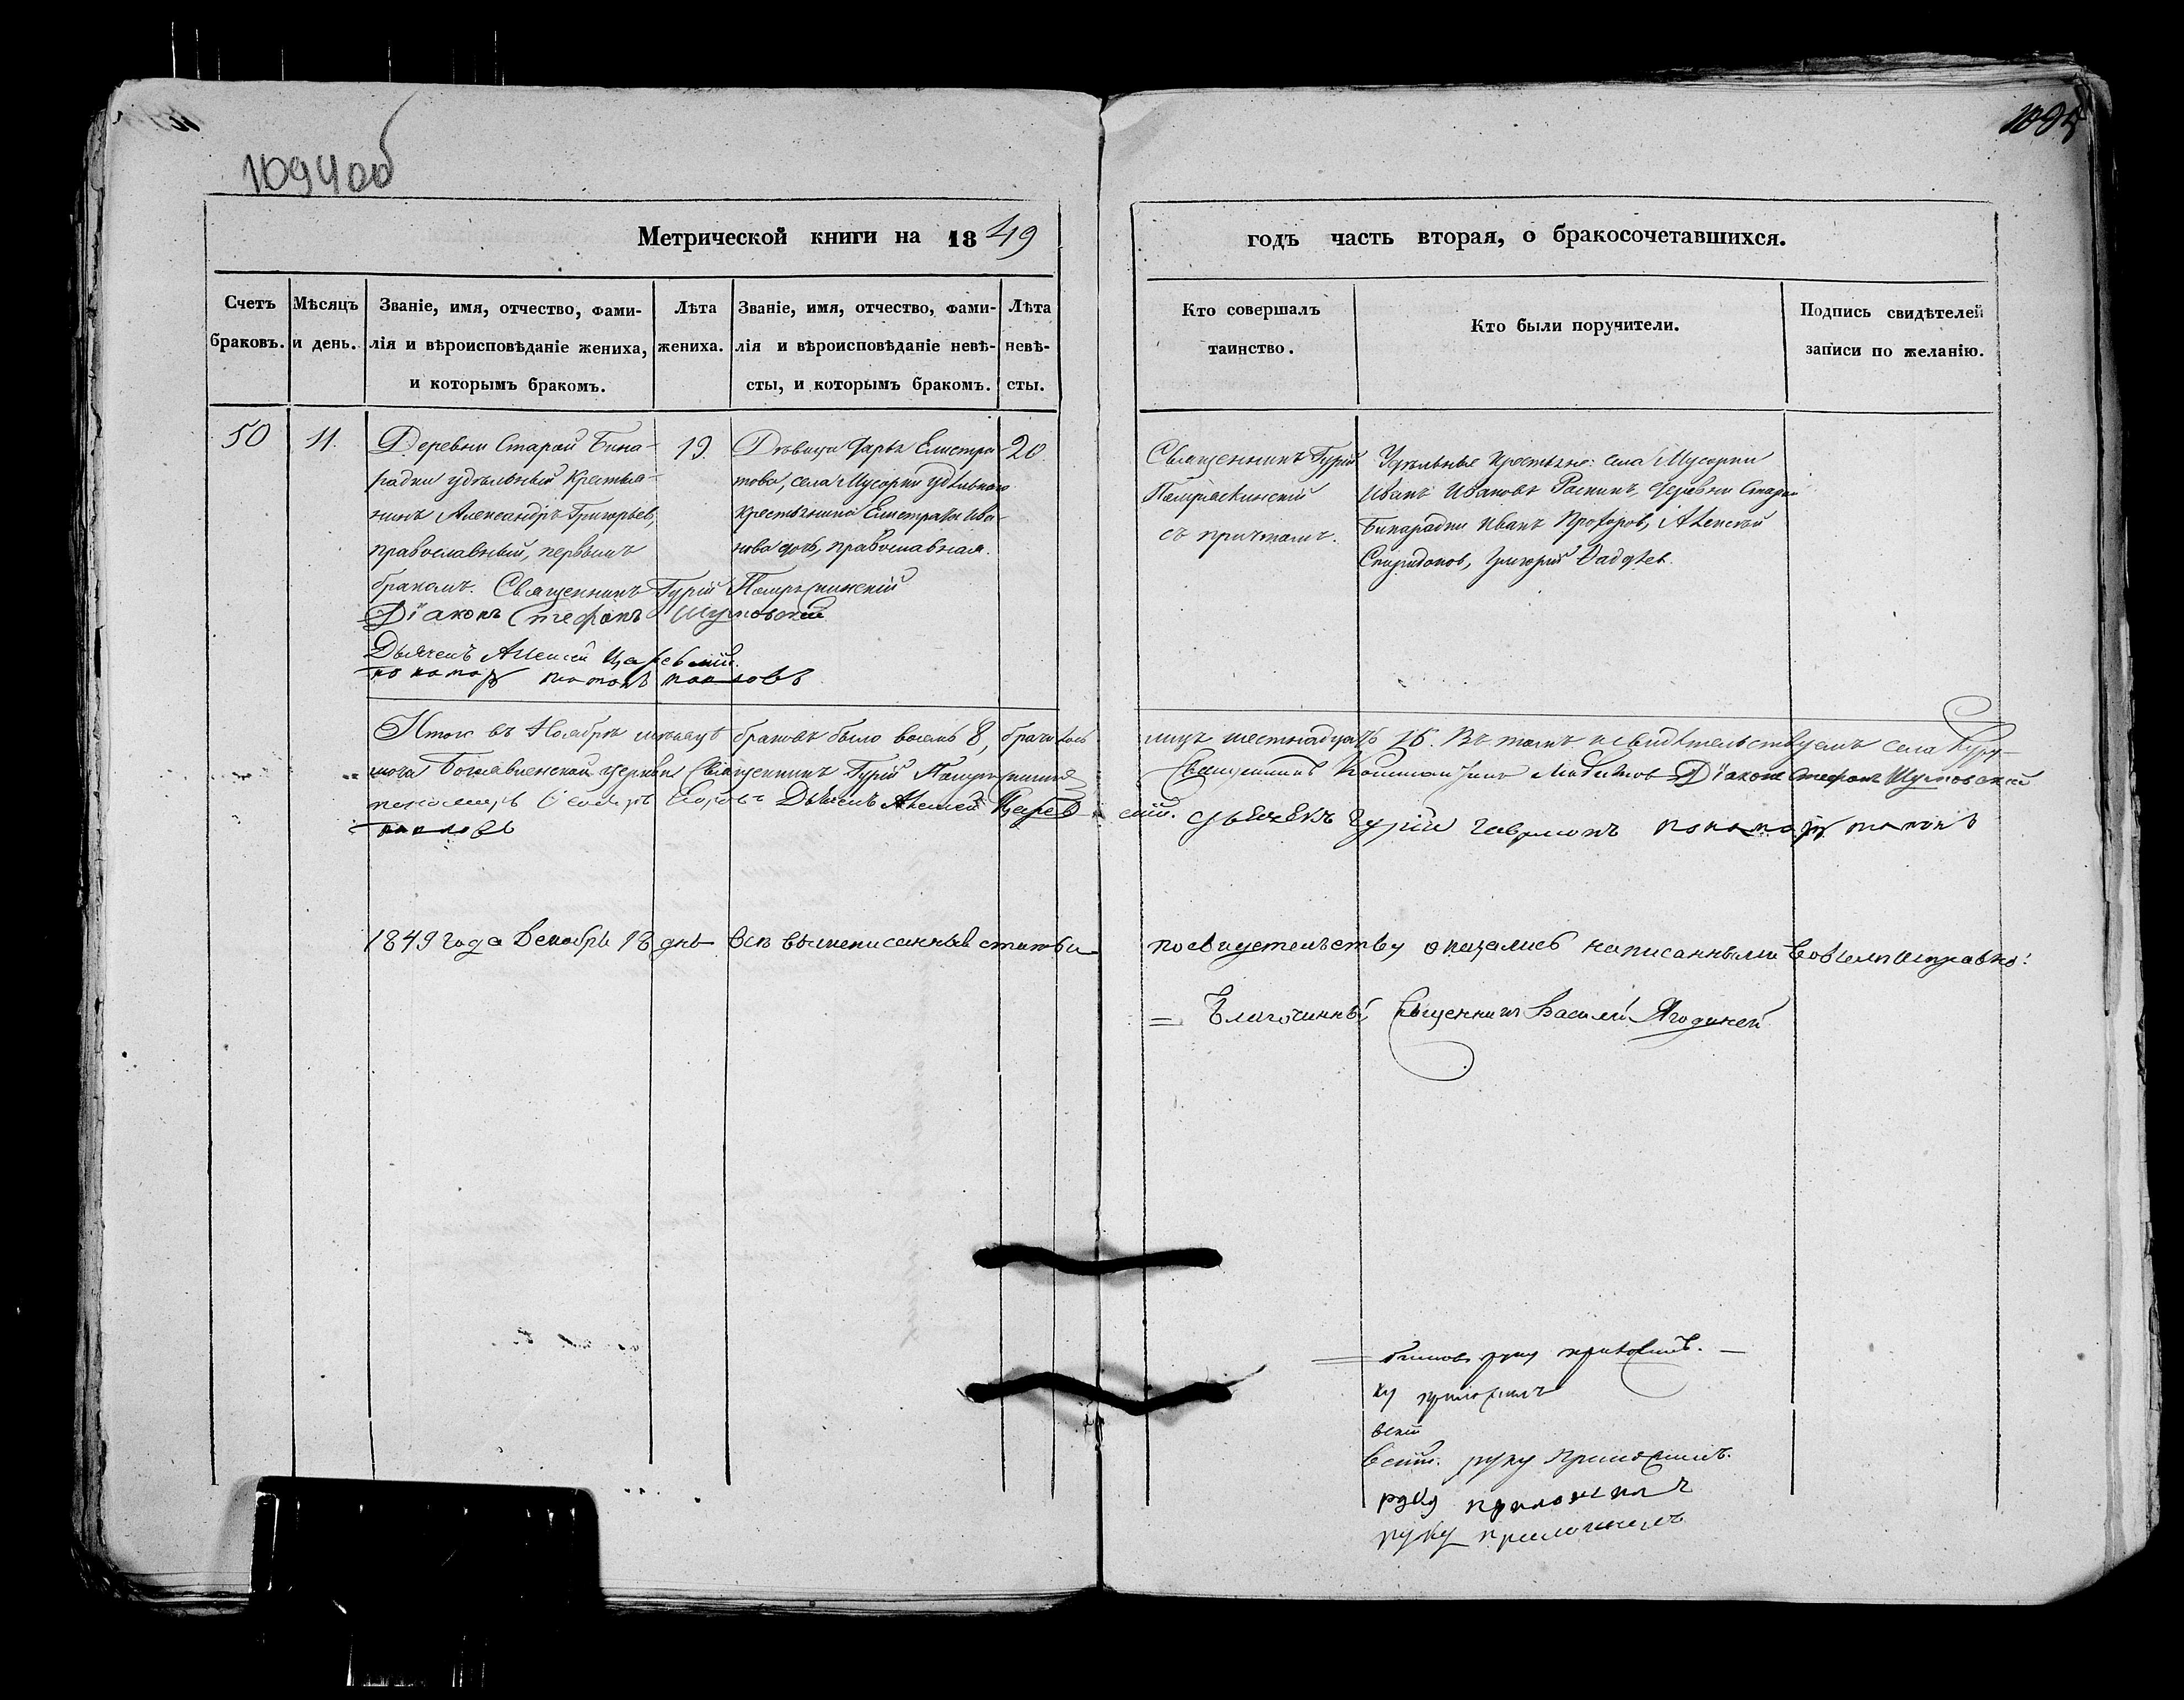 1094об
1095
Метрической книги на 1849
годъ часть вторая, о бракосочетавшихся.
Счетъ браковъ.
Мѣсяцъ и день.
Званіе, имя, отчество, фами-
лія и вѣроисповѣданіе жениха,
и которымъ бракомъ.
Лѣта
жениха.
Званіе, имя, отчество, фами-
лія и вѣроисповѣданіе невѣ-
сты, и которымъ бракомъ.
Лѣта
невѣ-
сты.
Кто совершалъ
таинство.
Кто были поручители.
Подпись свидѣтелей
записи по желанію.
50
11.
Деревни Старой Бина-
радки удѣльный крестья-
нинъ Александръ Григорьев,
православный, первымъ
бракомъ.
19.
Дѣвица Дарья Елистра
това, села Мусорки удѣльнаго
крестьянина Елистрата Ива-
нова дочь, православная.
20
Священникъ Гурій
съ причтомъ.
Удѣльные крестьяне: села Мусорки
Иванъ Ивановъ деревни Старой
Бинарадки Иванъ Прохоров, Алексѣй
Спиридонов, Григорій Фадѣев.
Священникъ Гурій
Діаконъ Стефанъ Шумовский
Дьячекъ Алексей Царевскій.
пономарь
Итого въ Ноябрѣ месяцѣ браковъ было восемь 8, брачившихся
лицъ шестнадцать 16. Въ томъ и свидѣтельствуемъ села
Богоявленской церкви Священникъ Гурій
Священникъ Діаконъ Стефанъ Шумовский
Дьячекъ Алексей Царевскій. дьячекъ Гурій пономарь
1849 года Декабря 18 дня все вышеписанныя статьи
по свидетельству оказались написанными во всем исправно:
Благочинный Священник Василий Ягодинский
руку приложилъ.
ку приложилъ
вскій
вскій. руку приложилъ.
руку приложилъ
руку приложилъ